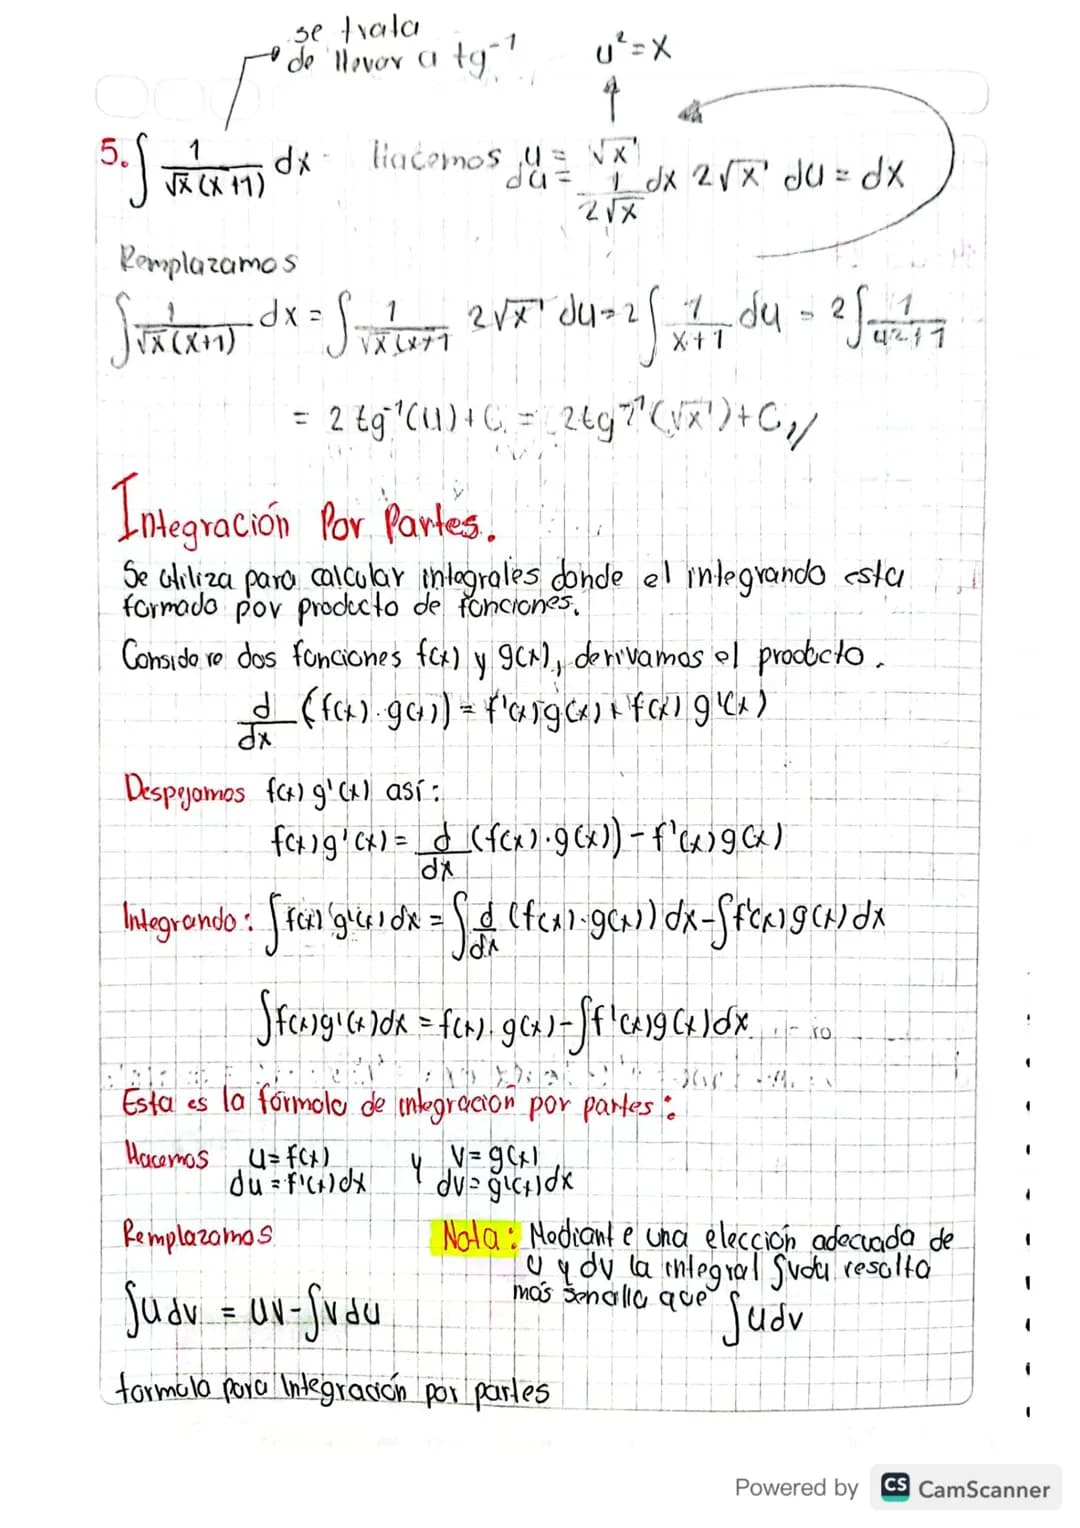 se trata
de llevar a tg⁻¹ u²=x
5. ∫ 1/(√x (x+1)) dx Hacemos u = √x
du = 1/(2√x) dx 2√x du = dx
Remplazamos
∫ 1/(√x (x+1)) dx = ∫ 1/(√x (x+1 2√x du = 2∫ 1/(x+1) du = 2∫ 1/(u²+1)
= 2 tg⁻¹(u) + C = 2tg⁻¹(√x) + C //
Integración Por Partes.
Se utiliza para calcular integrales donde el integrando esta
formado por producto de funciones.
Considere dos funciones f(x) y g(x), derivamos el producto.
d/dx (f(x)·g(x)) = f'(x)g(x) + f(x) g'(x)
Despejamos f(x) g'(x) así:
f(x)g'(x) = d/dx (f(x)·g(x)) - f'(x)g(x)
Integrando: ∫f(x) g'(x) dx = ∫ d/dx (f(x)·g(x)) dx - ∫f'(x)g(x) dx
∫f(x)g'(x)dx = f(x)·g(x) - ∫f'(x)g(x)dx
Esta es la fórmula de integración por partes:
Hacemos u = f(x) y v = g(x)
du = f'(x)dx dv = g'(x)dx
Remplazamos Nota: Mediante una elección adecuada de
u y dv la integral ∫vdu resulta
más sencilla que ∫udv
∫u dv = uv - ∫v du
formula para Integración por partes
Powered by CS CamScanner